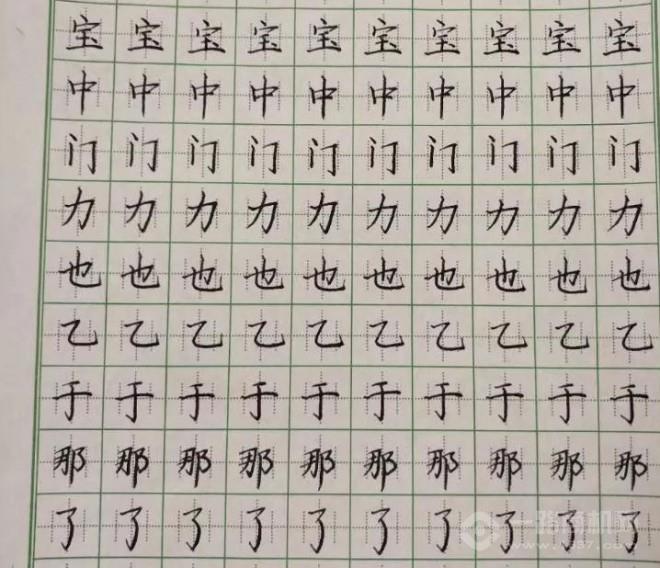 宝宝宝宝宝宝宝宝宝宝
中中中中中中中中中中
门门门门门门门门门门
力力力力力力力力力力
也也也也也也也也也也
乙乙乙乙乙乙乙乙乙乙
于于于于于于于于于于
那那那那那那那那那那
了了了了了了了了了了